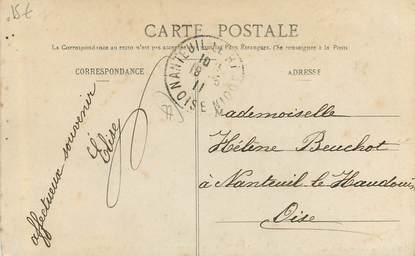 15€
CARTE POSTALE
La Correspondance au recto n'est pas acceptée par tous les Pays Étrangers. (Se renseigner à la Poste)
CORRESPONDANCE
ADRESSE
NANTEUIL LE HT
OISE
11
affectueux souvenir
Elise
Mademoiselle
Hélène Beuchot
à Nanteuil-le-Haudouin
Oise